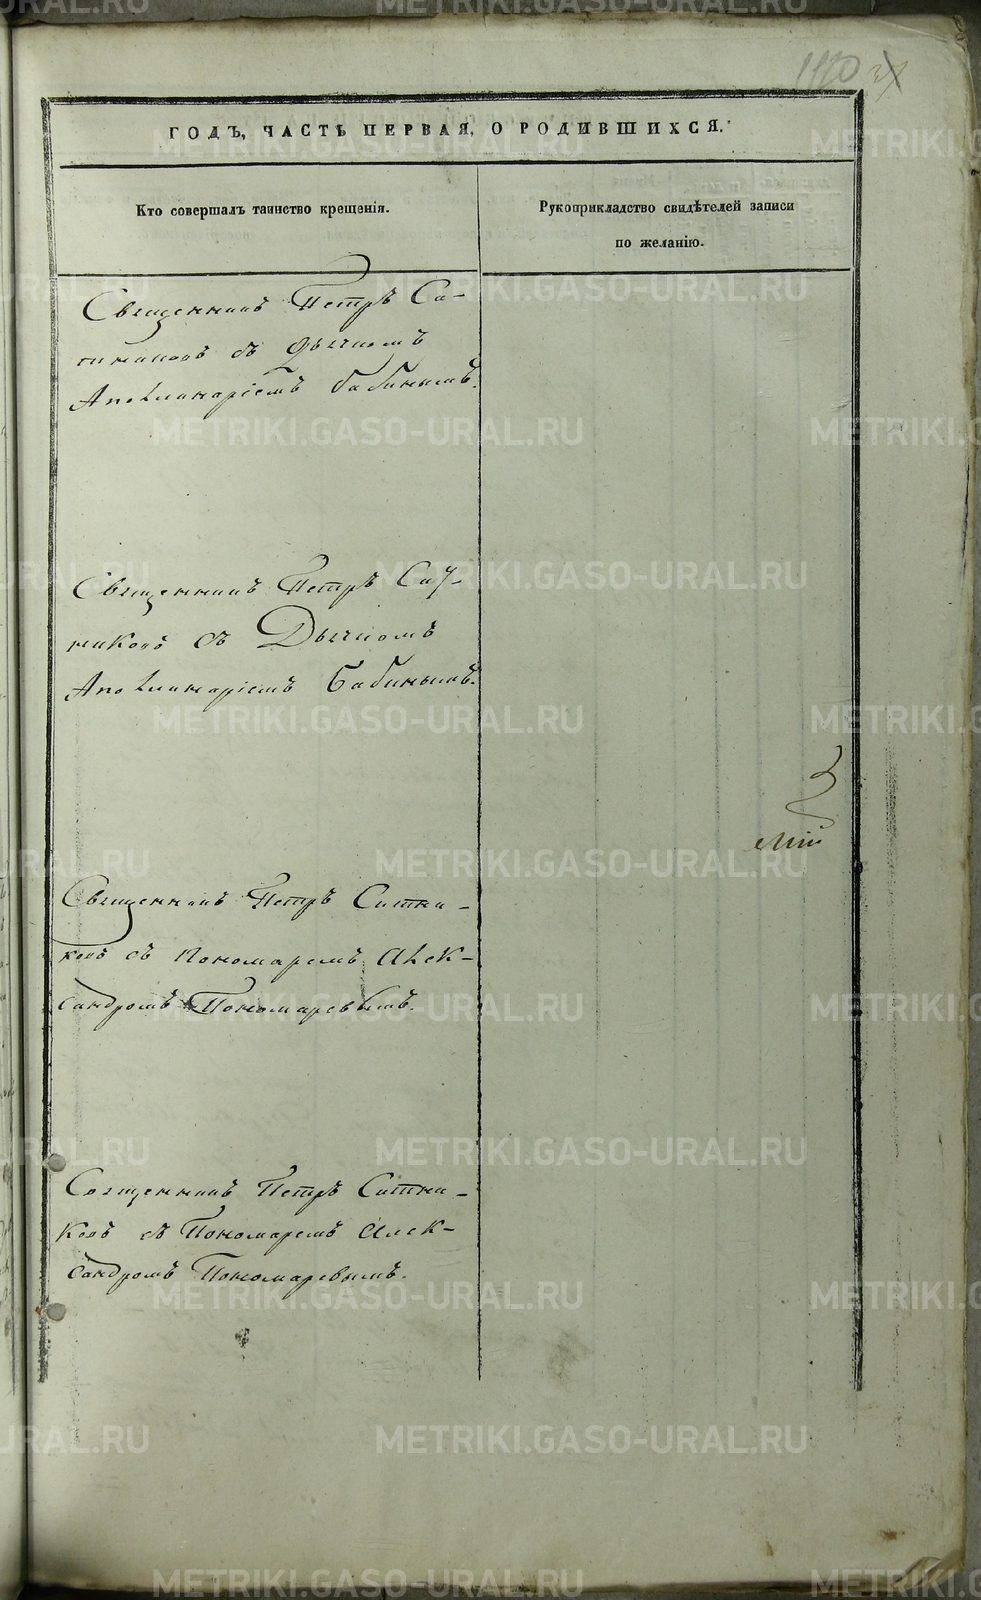 ГОДЪ, ЧАСТЬ ПЕРВАЯ, О РОДИВШИХСЯ.
Кто совершалъ таинство крещенія.
Рукоприкладство свидѣтелей записи
по желанію.
Священникъ Петръ Си-
съ Дьячкомъ
Аполлинаріемъ Бабинымъ.
Священникъ Петръ Сит-
никовъ съ Дьячкомъ
Аполлинаріемъ Бабинымъ.
Священникъ Петръ Ситни-
ковъ съ Пономаремъ Алек-
сандромъ Пономаревымъ.
Священникъ Петръ Ситни-
ковъ съ Пономаремъ Алек-
сандромъ Пономаревымъ.
METRIKI.GASO-URAL.RU